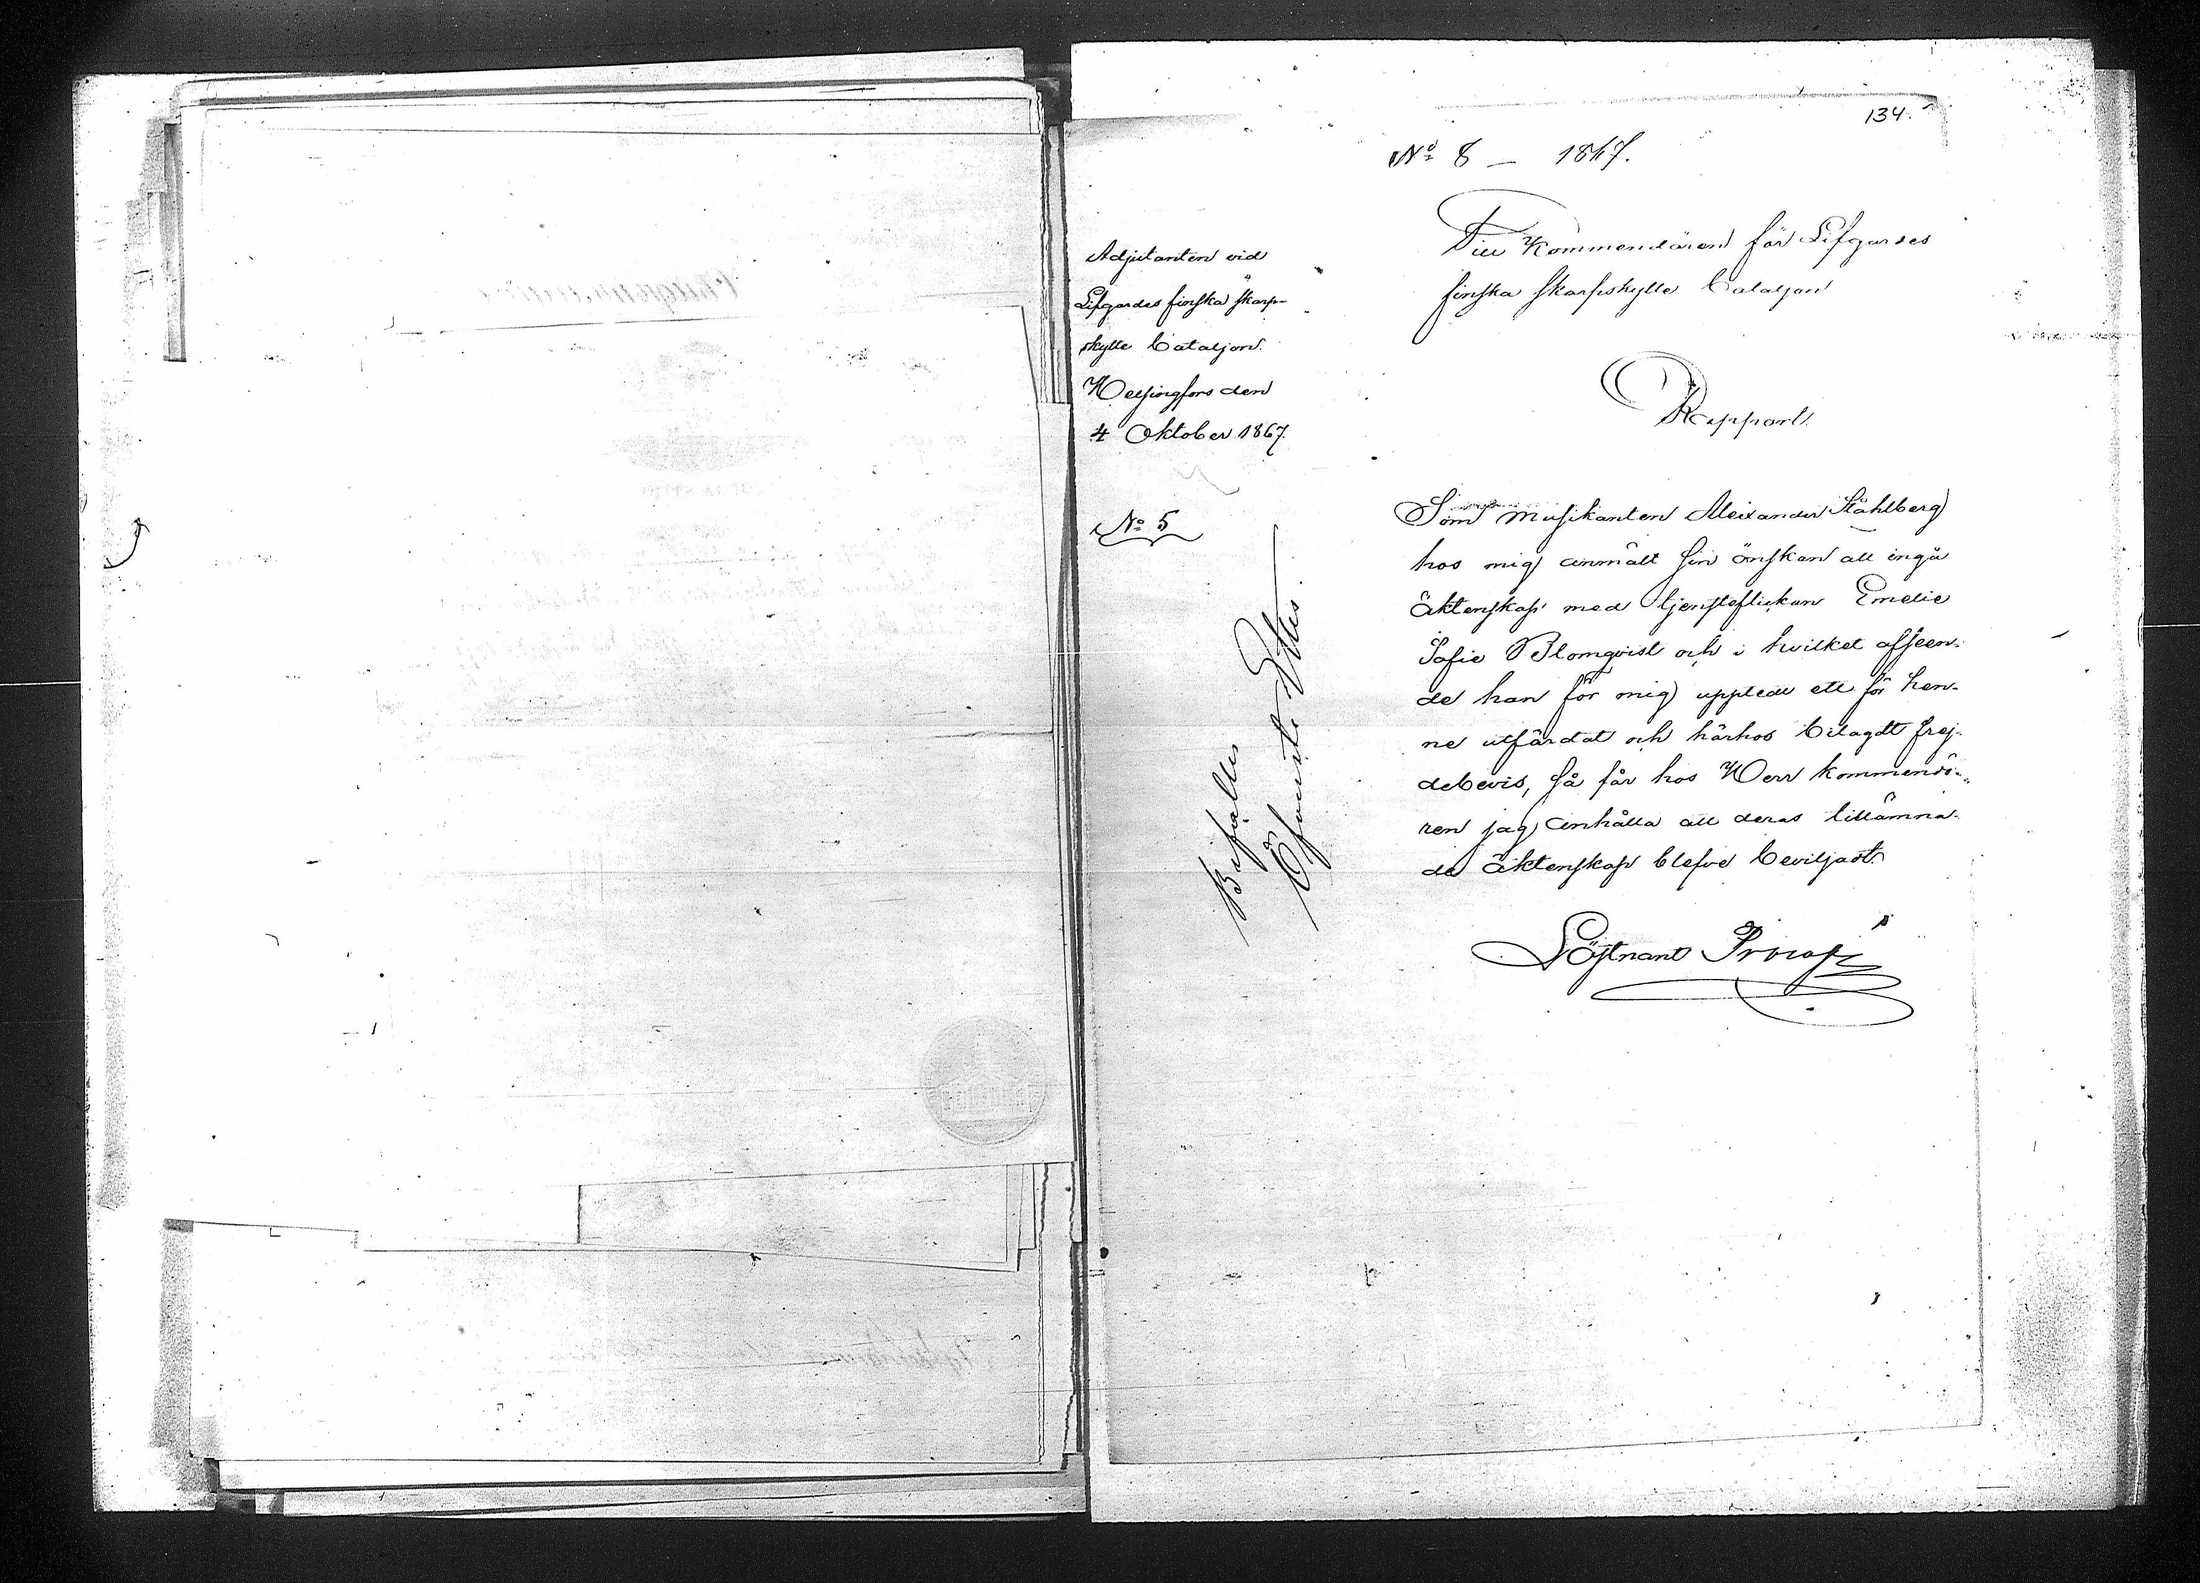 134.
No 8 – 1867.
Adjutanten vid
Lifgardes finska skarp-
skytte bataljon.
Helsingfors den
4 Oktober 1867.
No 5
Till Kommendören för Lifgardes
finska skarpskytte bataljon
Rapport.
Som musikanten Alexander Ståhlberg
hos mig anmält sin önskan att ingå
äktenskap med tjensteflickan Emelie
Sofie Blomqvist och i hvilket afseen-
de han för mig uppledt ett för hen-
ne utfärdat och härhos bilagdt frej-
debevis, så får hos Herr kommendö-
ren jag anhålla att deras tillämna-
de äktenskap blefve beviljadt.
Löjtnant Procopé
Bifalles
Öfverste